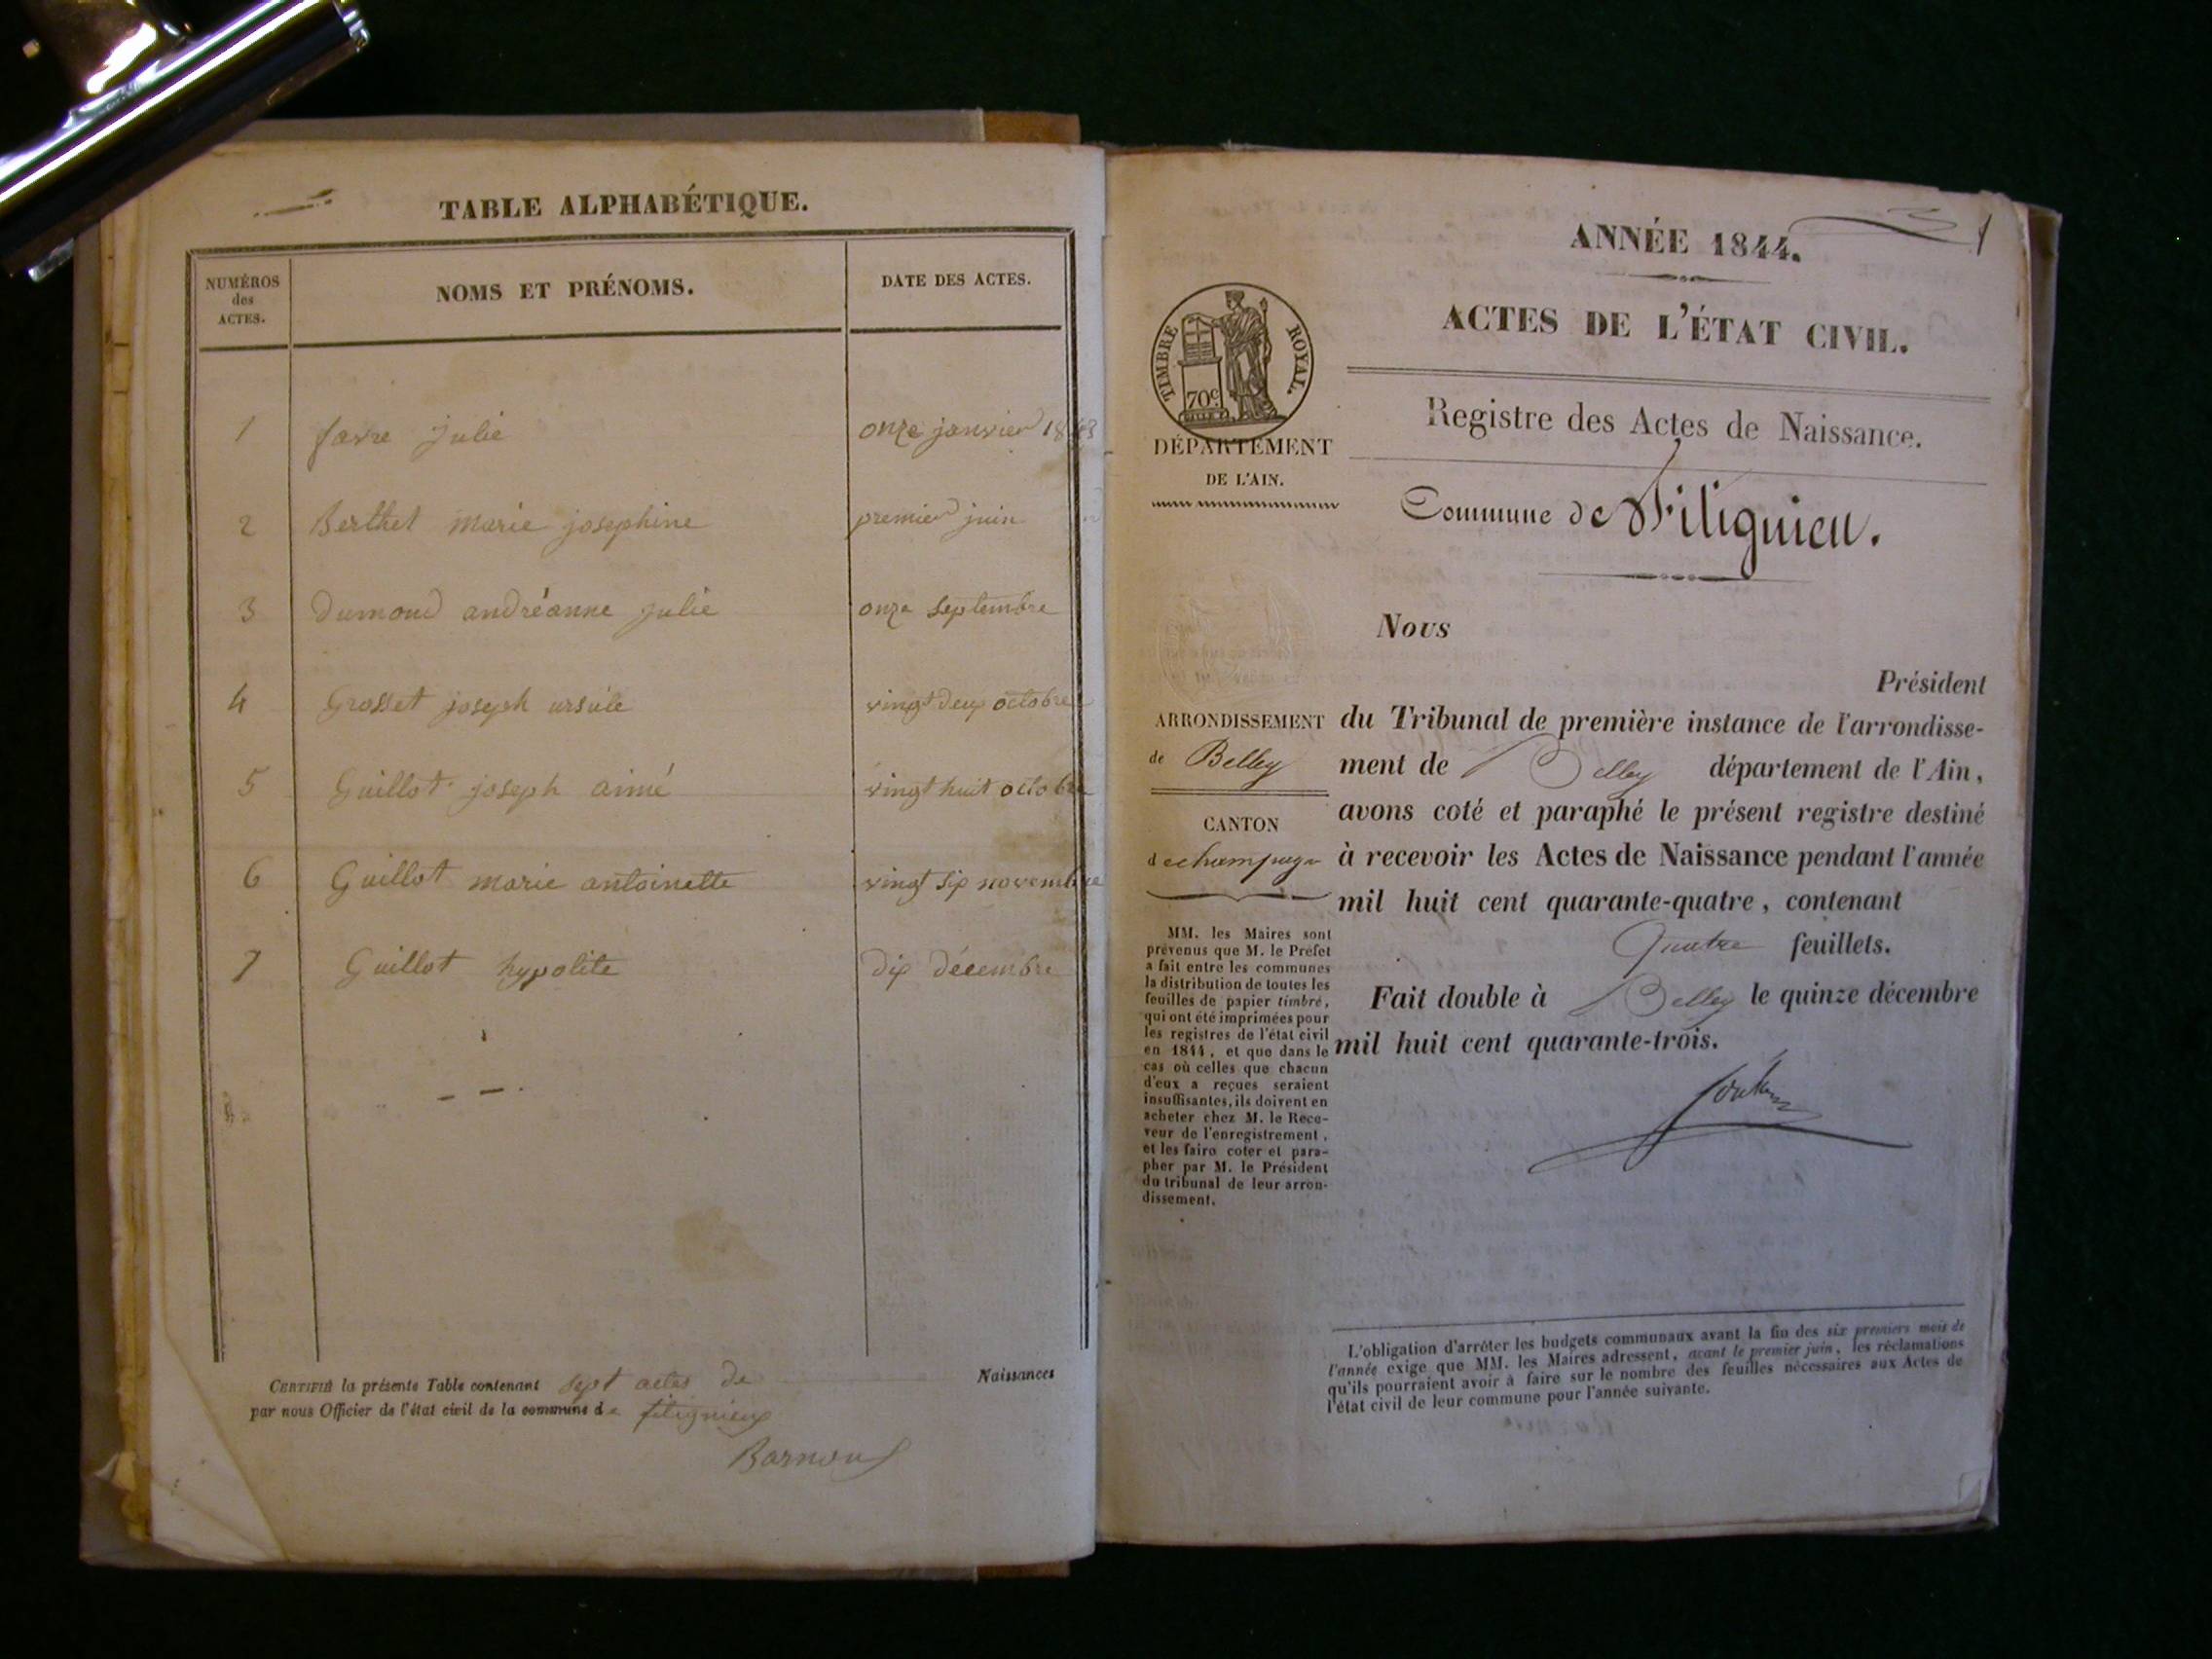 TABLE ALPHABÉTIQUE.
NUMÉROS
des
ACTES.
NOMS ET PRÉNOMS.
DATE DES ACTES.
1 favre julie onze janvier 1843
2 Berthet marie josephine premier juin
3 Dumond andréanne julie onze septembre
4 Grosset joseph ursule vingt deux octobre
5 Guillot joseph aimé vingt huit octobre
6 Guillot marie antoinette vingt six novembre
7 Guillot hypolite dix décembre
CERTIFIÉ la présente Table contenant sept actes de Naissances
par nous Officier de l'état civil de la commune de
ANNÉE 1844.
1
ACTES DE L'ÉTAT CIVIL.
Registre des Actes de Naissance.
Commune de Filignieu.
TIMBRE ROYAL.
70c
DÉPARTEMENT
DE L'AIN.
ARRONDISSEMENT
de Belley
CANTON
MM. les Maires sont
prévenus que M. le Préfet
a fait entre les communes
la distribution de toutes les
feuilles de papier timbré,
qui ont été imprimées pour
les registres de l'état civil
en 1844, et que dans le
cas où celles que chacun
d'eux a reçues seraient
insuffisantes, ils doivent en
acheter chez M. le Rece-
veur de l'enregistrement,
et les faire coter et para-
pher par M. le Président
du tribunal de leur arron-
dissement.
Nous
Président
du Tribunal de première instance de l'arrondisse-
ment de Belley département de l'Ain,
avons coté et paraphé le présent registre destiné
à recevoir les Actes de Naissance pendant l'année
mil huit cent quarante-quatre, contenant
Quatre feuillets.
Fait double à Belley le quinze décembre
mil huit cent quarante-trois.
L'obligation d'arrêter les budgets communaux avant la fin des six premiers mois de
l'année exige que MM. les Maires adressent, avant le premier juin, les réclamations
qu'ils pourraient avoir à faire sur le nombre des feuilles nécessaires aux Actes de
l'état civil de leur commune pour l'année suivante.